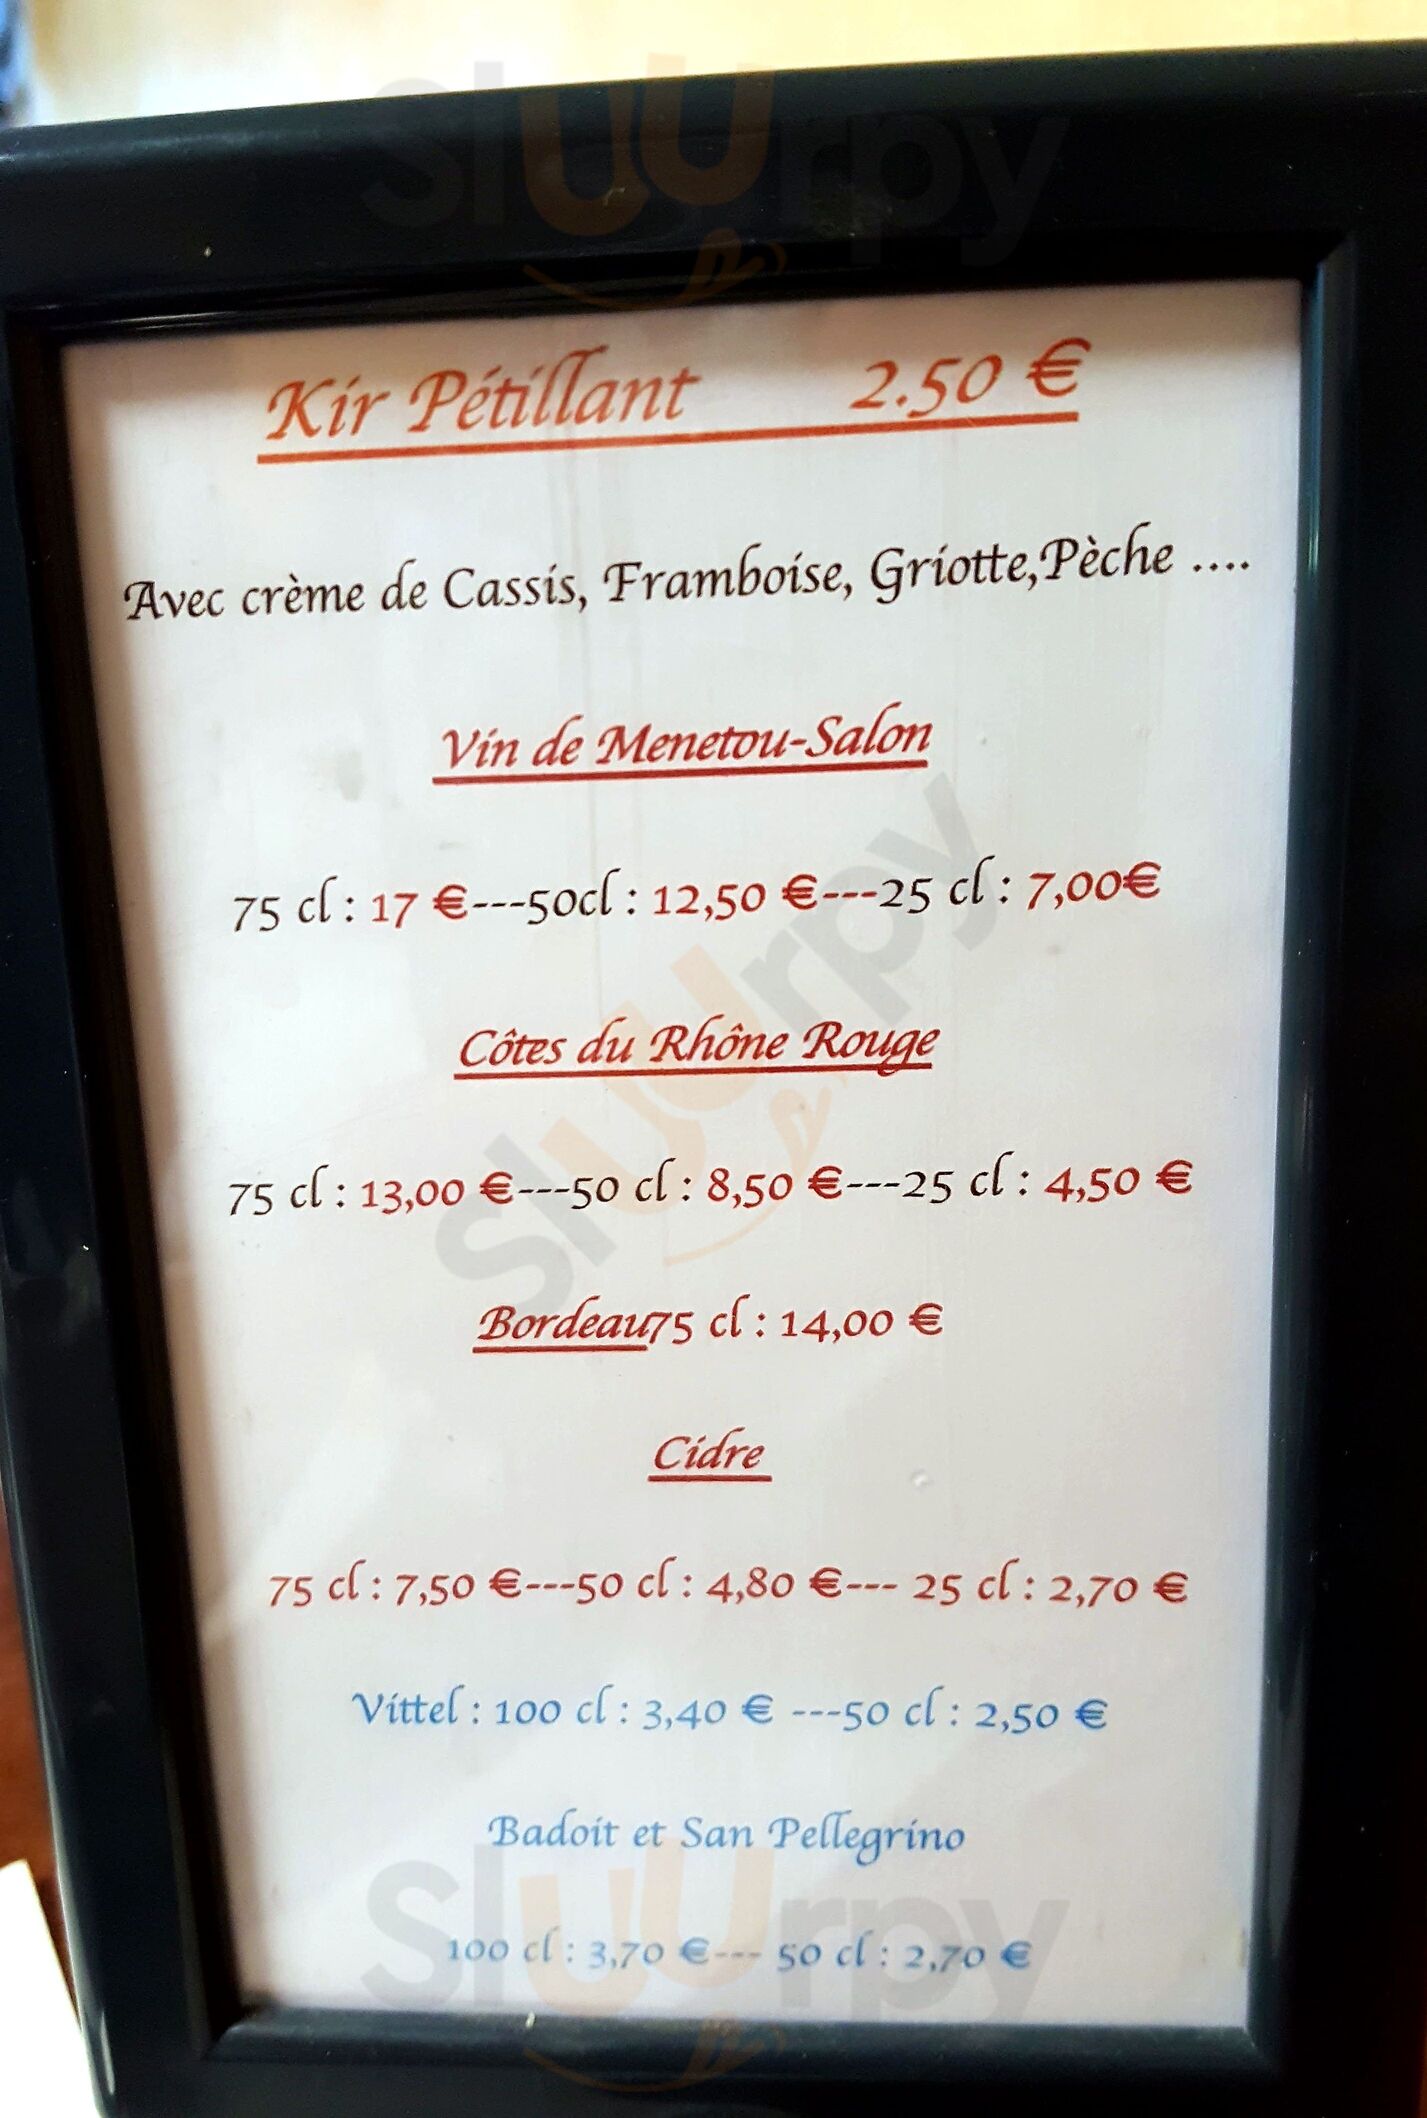 Kir Pétillant 2.50 €
Avec crème de Cassis, Framboise, Griotte,Pèche ....
Vin de Menetou-Salon
75 cl : 17 €---50cl : 12,50 €---25 cl : 7,00€
Côtes du Rhône Rouge
75 cl : 13,00 €---50 cl : 8,50 €---25 cl : 4,50 €
Bordeau75 cl : 14,00 €
Cidre
75 cl : 7,50 €---50 cl : 4,80 €--- 25 cl : 2,70 €
Vittel : 100 cl : 3,40 € ---50 cl : 2,50 €
Badoit et San Pellegrino
100 cl : 3,70 €--- 50 cl : 2,70 €
sluurpy
sluurpy
sluurpy